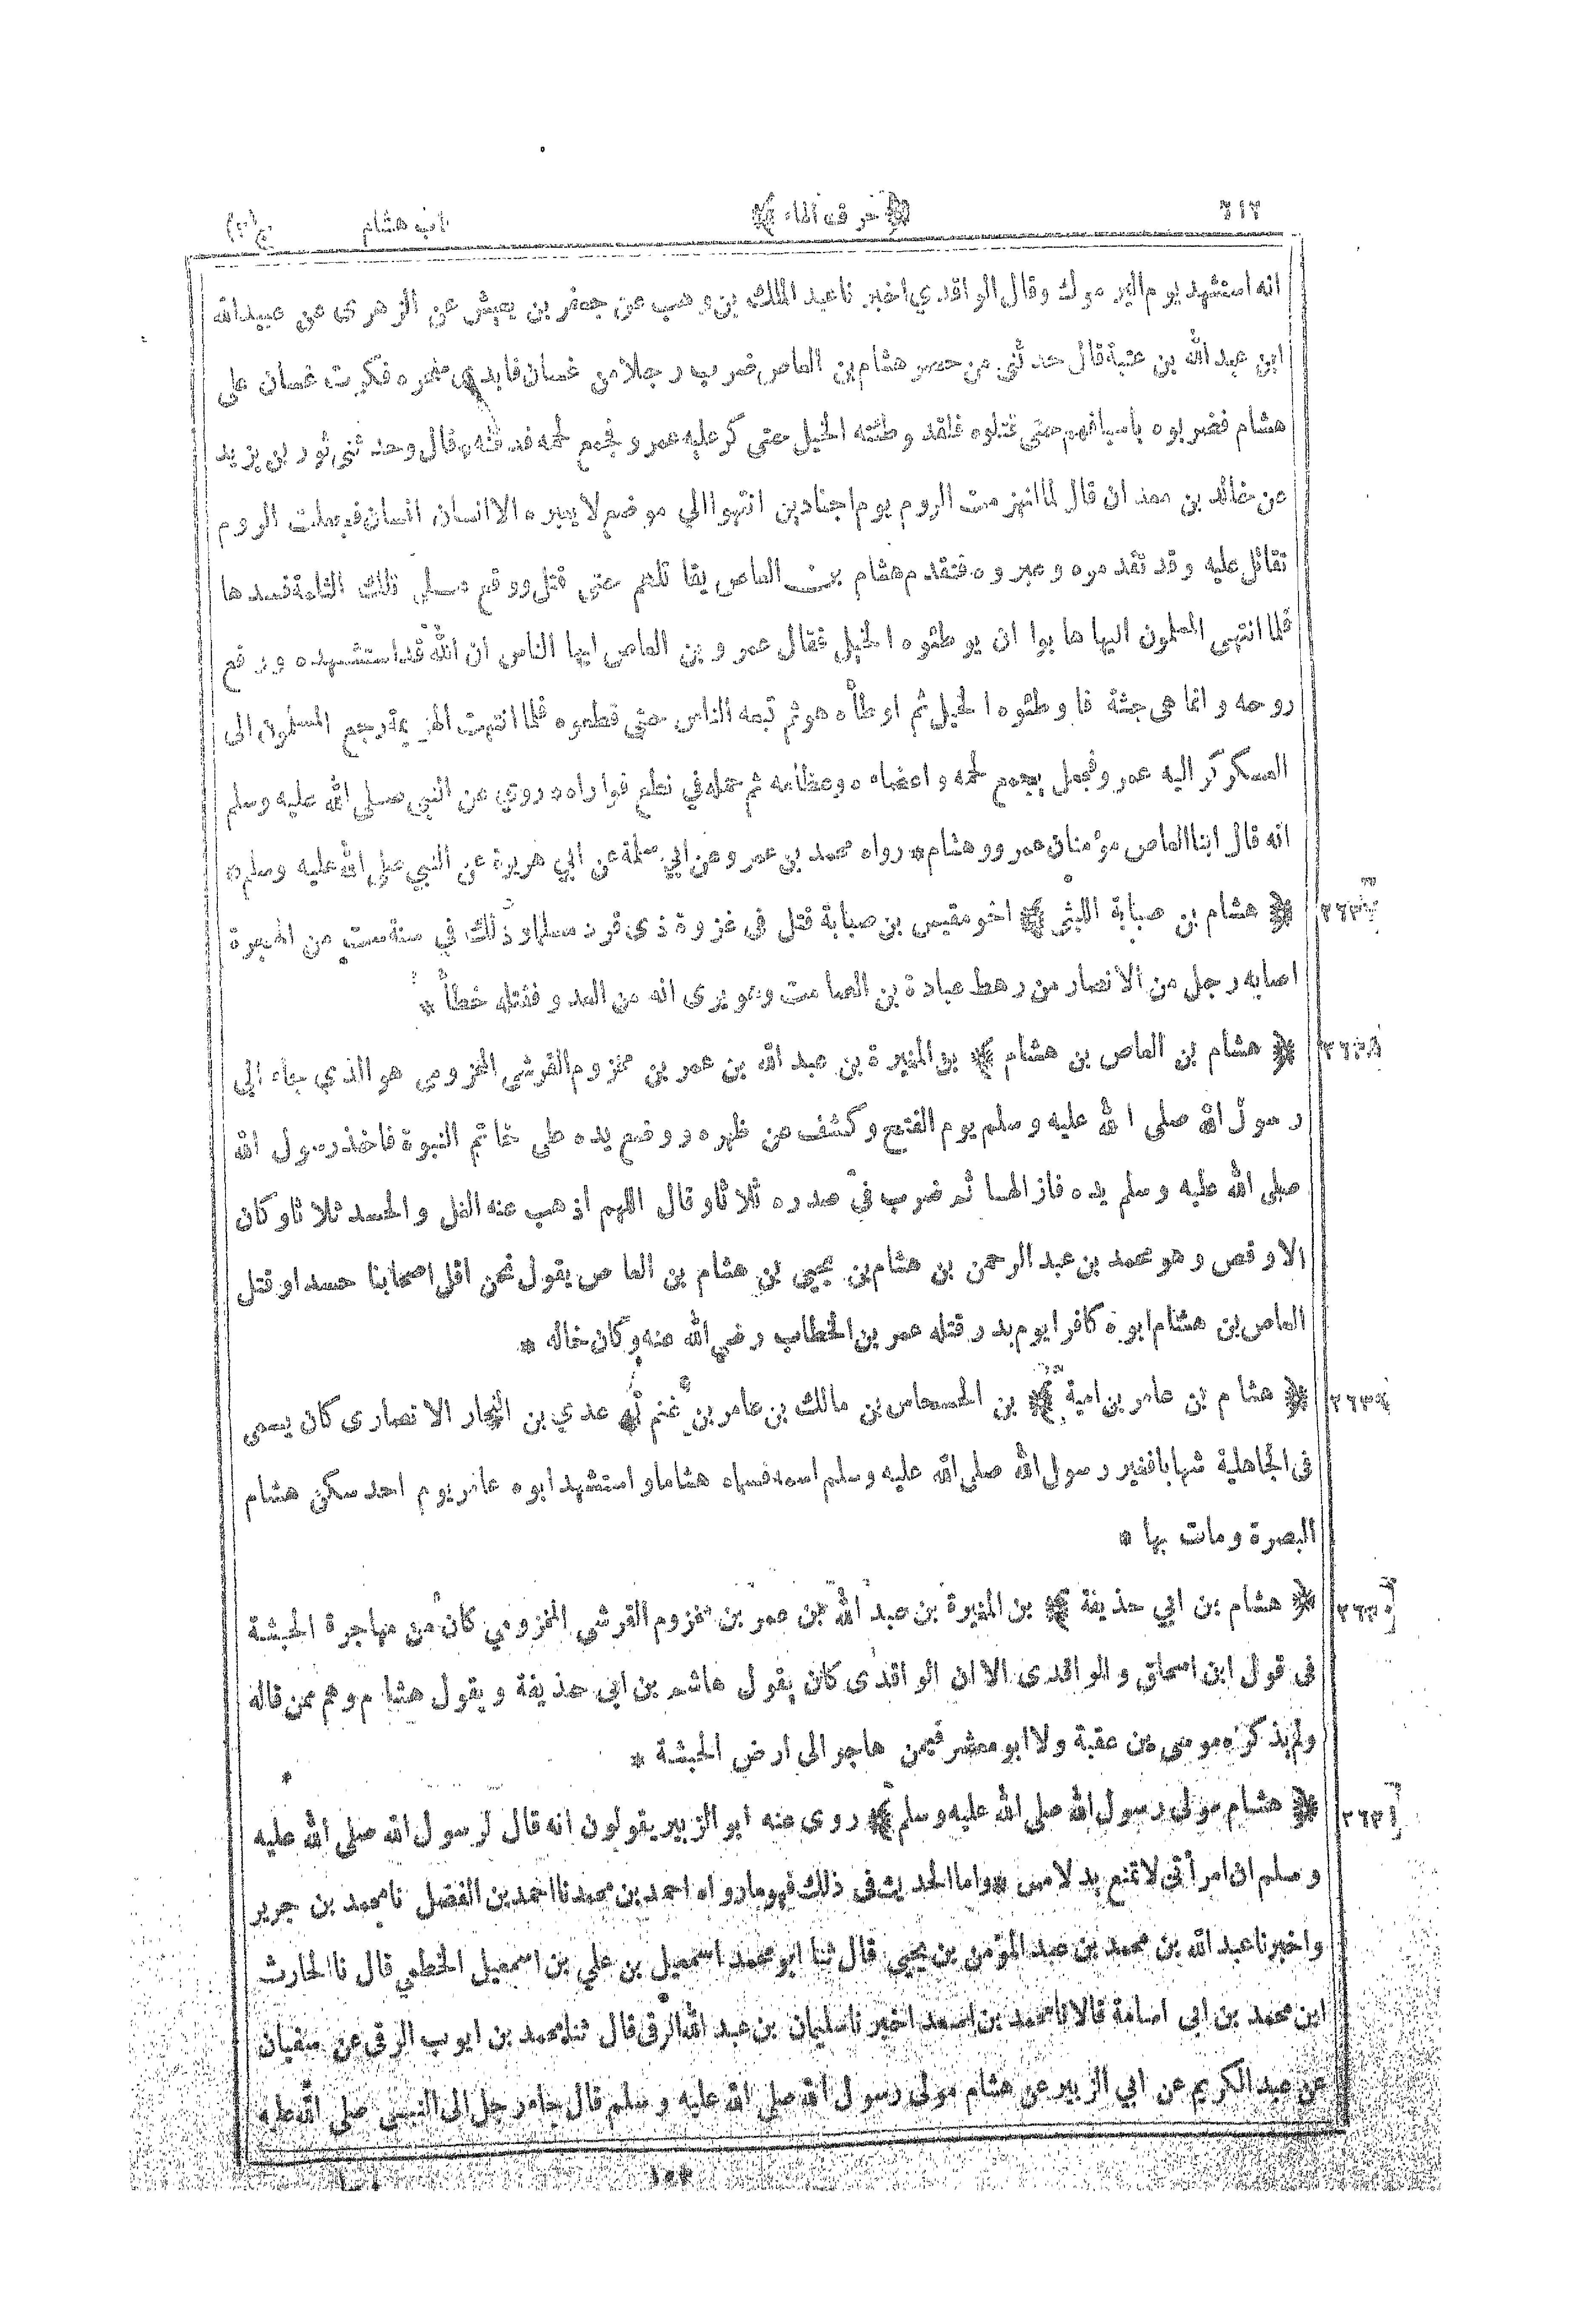 ٦١٢ ﴿ حرف الهاء ﴾ باب هشام ج (٢)
انه استشهد يوم اليرموك وقال الواقدي اخبرنا عبد الملك بن وهب عن جعفر بن يعيش عن الزهرى عن عبيدالله
ابن عبد الله بن عتبة قال حدثني من حضر هشام بن العاص ضرب رجلا من غسان فابدى منحره فكرت غسان على
هشام فضربوه باسيافهم حتى قتلوه فلقد وطئته الخيل حتى كر عليه عمرو فجمع لحمه فدفنه * قال وحدثنى ثور بن يزيد
عن خالد بن معدان قال لما انهزمت الروم يوم اجنادين انتهوا الي موضع لا يعبره الا انسان انسان فجعلت الروم
تقاتل عليه وقد تقدموه وعبروه فتقدم هشام بن العاص يقاتلهم حتى قتل ووقع على تلك الثلمة فسدها
فلما انتهى المسلمون اليها هابوا ان يوطئوه الخيل فقال عمرو بن العاص ايها الناس ان الله قد استشهده ورفع
روحه وانما هى جثة فاوطئوه الخيل ثم اوطأه هو ثم تبعه الناس حتى قطعوه فلما انتهت الهزيمة ورجع المسلمون الى
العسكر كر اليه عمرو فجعل يجمع لحمه واعضاءه وعظامه ثم حمله في نطع فواراه * روي عن النبي صلى الله عليه وسلم
انه قال ابنا العاص مؤمنان عمرو وهشام * رواه محمد بن عمرو عن ابي سلمة عن ابي هريرة عن النبي صلى الله عليه وسلم *
٢٦٢٧ ﴿ هشام بن صبابة الليثى ﴾ اخو مقيس بن صبابة قتل فى غزوة ذى قرد مسلما وذلك في سنة ست من الهجرة
اصابه رجل من الانصار من رهط عبادة بن الصامت وهو يرى انه من العدو فقتله خطأ *
٢٦٢٨ ﴿ هشام بن العاص بن هشام ﴾ بن المغيرة بن عبد الله بن عمر بن مخزوم القرشي المخزومى هو الذي جاء الي
رسول الله صلى الله عليه وسلم يوم الفتح وكشف عن ظهره ووضع يده على خاتم النبوة فاخذ رسول الله
صلى الله عليه وسلم يده فازالها ثم ضرب في صدره ثلاثا وقال اللهم اذهب عنه الغل والحسد ثلاثا وكان
الاوقص وهو محمد بن عبد الرحمن بن هشام بن يحيى بن هشام بن العاص يقول نحن اقل اصحابنا حسدا وقتل
العاص بن هشام ابوه كافرا يوم بدر قتله عمر بن الخطاب رضي الله عنه وكان خاله *
٢٦٢٩ ﴿ هشام بن عامر بن امية ﴾ بن الحسحاس بن مالك بن عامر بن غنم بن عدي بن النجار الانصارى كان يسمى
فى الجاهلية شهابا فغير رسول الله صلى الله عليه وسلم اسمه فسماه هشاما واستشهد ابوه عامر يوم احد سكن هشام
البصرة ومات بها *
٢٦٣٠ ﴿ هشام بن ابي حذيفة ﴾ بن المغيرة بن عبد الله بن عمر بن مخزوم القرشي المخزومي كان من مهاجرة الحبشة
فى قول ابن اسحاق والواقدى الا ان الواقدى كان يقول هاشم بن ابى حذيفة ويقول هشام وهم ممن قاله
ولم يذكره موسى بن عقبة ولا ابو معشر فيمن هاجر الى ارض الحبشة *
٢٦٣١ ﴿ هشام مولى رسول الله صلى الله عليه وسلم ﴾ روى عنه ابو الزبير يقولون انه قال لرسول الله صلى الله عليه
وسلم ان امرأتي لا تمنع يد لامس * واما الحديث فى ذلك فهو ما رواه احمد بن محمد نا احمد بن الفضل نا محمد بن جرير
واخبرنا عبد الله بن محمد بن عبد المؤمن بن يحيى قال ثنا ابو محمد اسمعيل بن علي بن اسمعيل الخطمى قال نا الحارث
ابن محمد بن ابى اسامة قالا نا محمد بن اسعد اخبرنا سليمان بن عبد الله الرقى قال ثنا محمد بن ايوب الرقى عن سفيان
عن عبد الكريم عن ابي الزبير عن هشام مولى رسول الله صلى الله عليه وسلم قال جاء رجل الى النبى صلى الله عليه